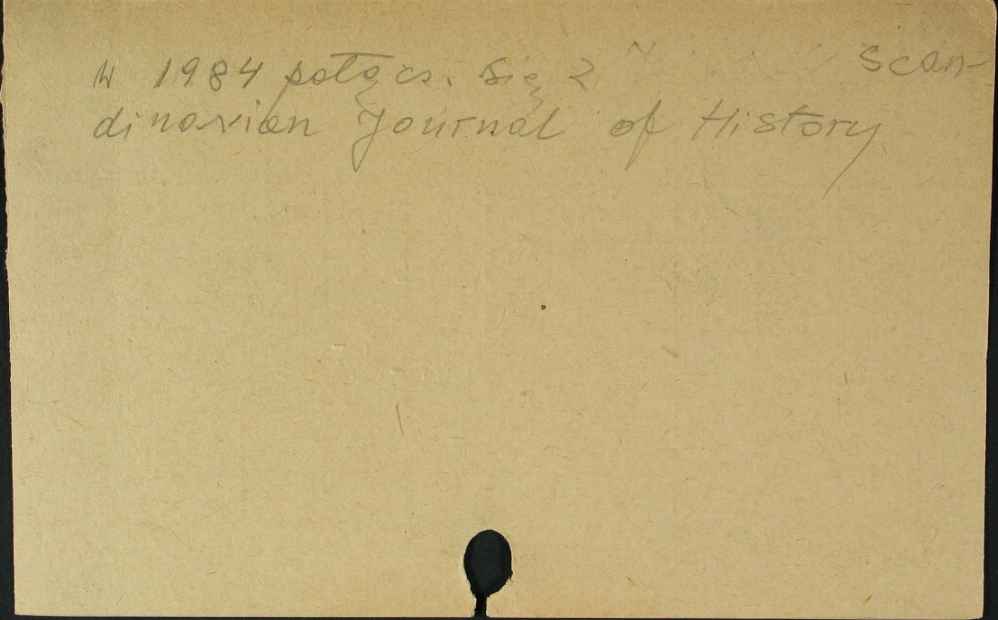 w 1984 połącz. się z Scan-
dinavian Journal of History